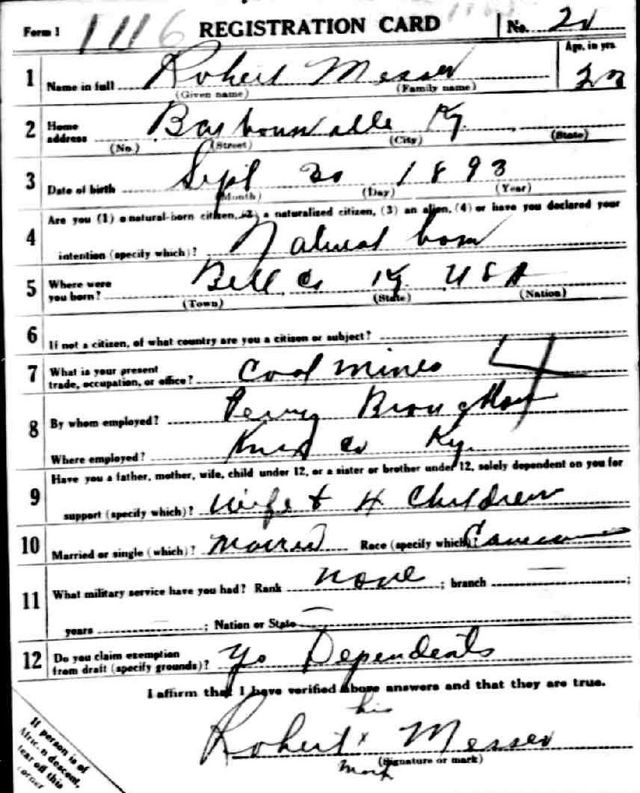 Form 1 1116 REGISTRATION CARD No. 21
Age, in yrs.
1 Name in full Robert Messer 23
(Given name) (Family name)
2 Home address Barbourvalle Ky.
(No.) (Street) (City) (State)
3 Date of birth Sept 30 1893
(Month) (Day) (Year)
Are you (1) a natural-born citizen, (2) a naturalized citizen, (3) an alien, (4) or have you declared your
4 intention (specify which)? Natural born
5 Where were you born? Bell Co Ky USA
(Town) (State) (Nation)
6 If not a citizen, of what country are you a citizen or subject?
7 What is your present trade, occupation, or office? Coal mines 4
8 By whom employed? Perry Broughton
Where employed? Knox Co Ky.
Have you a father, mother, wife, child under 12, or a sister or brother under 12, solely dependent on you for
9 support (specify which)? Wife & 4 Children
10 Married or single (which)? Married Race (specify which)?
11 What military service have you had? Rank None ; branch — ;
years ; Nation or State —
12 Do you claim exemption from draft (specify grounds)? Ys Dependents
I affirm that I have verified above answers and that they are true.
his
Robert x Messer
mark (Signature or mark)
If person is of
African descent,
tear off this
corner